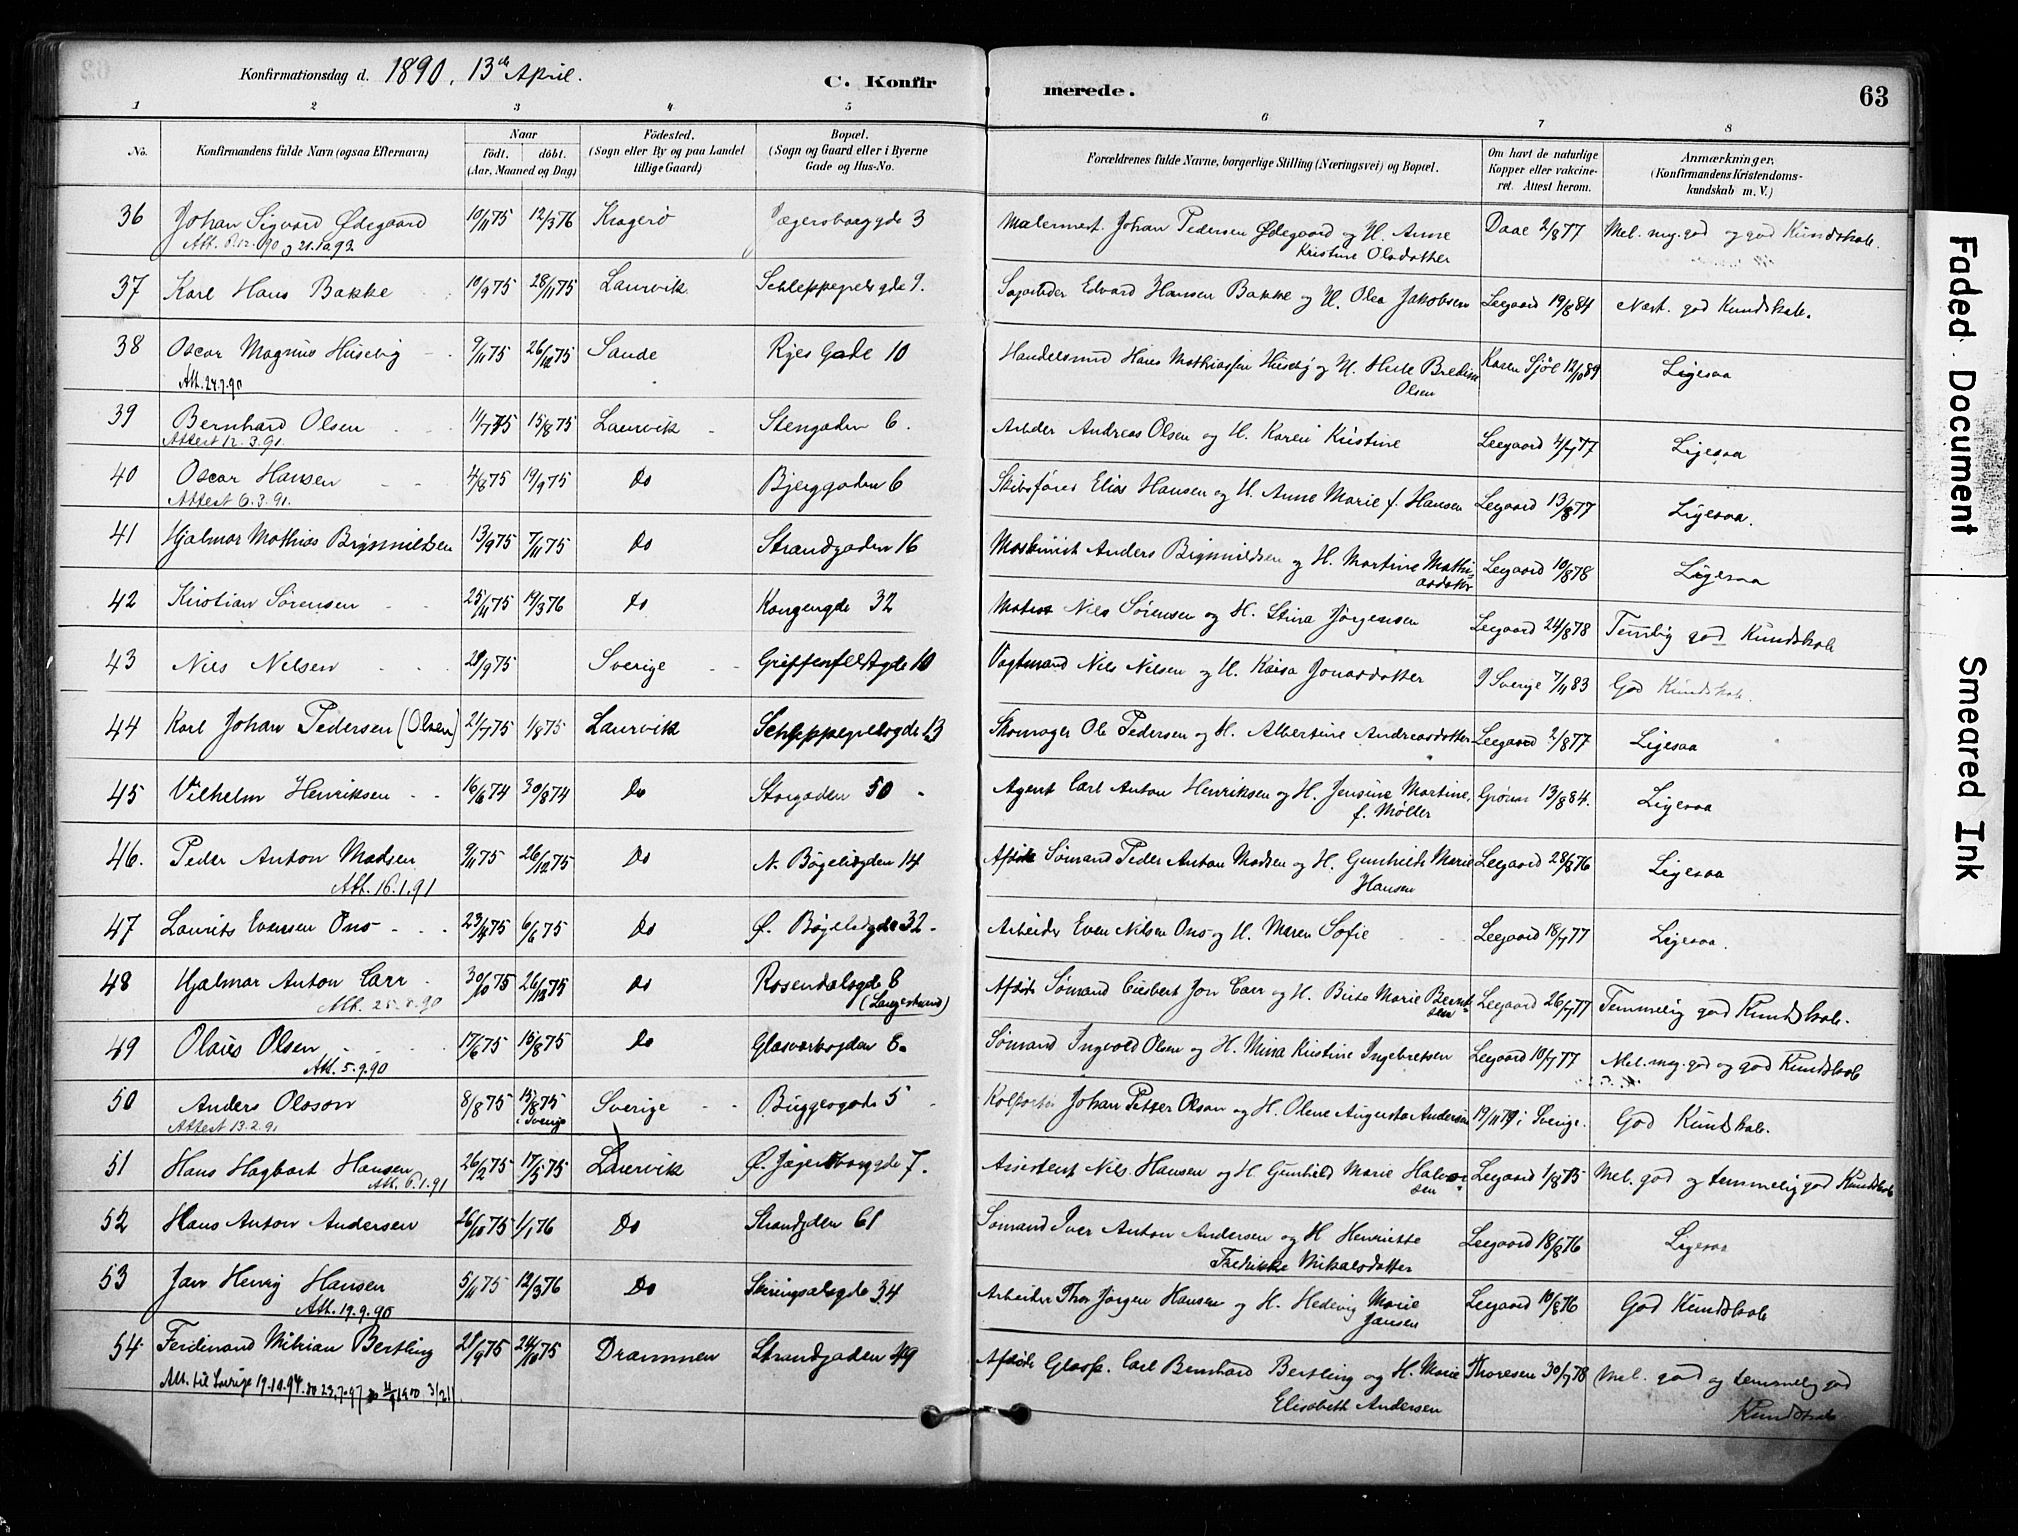 Konfirmationsdag d. 1890. 13de April.
C. Konfir
merede.
63
1 2 3 4 5 6 7 8
No.
Konfirmandens fulde Navn (ogsaa Efternavn)
Naar
födt. döbt.
(Aar, Maaned og Dag)
Födested.
(Sogn eller By og paa Landet
tillige Gaard)
Bopæl.
(Sogn og Gaard eller i Byerne
Gade og Hus-No.
Forældrenes fulde Navne, borgerlige Stilling (Næringsvei) og Bopæl.
Om havt de naturlige
Kopper eller vakcine-
ret. Attest herom.
Anmærkninger.
(Konfirmandens Kristendoms-
kundskab m. V.)
36 Johan Sigvard Ødegaard 10/11 75 12/3 76 Kragerö Jægersborggde 3 Malermest. Johan Pedersen Ødegaard og H. Anne Daae 2/8 77 Mel. meg. god og god Kundskab.
Kristine Olsdatter
37 Karl Hans Bakke 10/9 75 28/11 75 Laurvik Schleppegrelsgde 9. Edvard Hansen Bakke og H. Olea Jakobsen Leegaard 19/8 84 Næst. god Kundskab.
38 Oscar Magnus Huseby 9/11 75 26/12 75 Sande Ryes Gade 10 Handelsmd Hans Mathiassen Huseby og H. Bredine Karen Sjöl 12/10 89 Ligesaa
Olsen
Att. 24.7.90
39 Bernhard Olsen 11/7 75 15/8 75 Laurvik Stengaden 6. Arbder Andreas Olsen og H. Karen Kristine Leegaard 4/7 77 Ligesaa
Attest 12.3.91.
40 Oscar Hansen 4/8 75 19/9 75 Do Bjerggaden 6 Skibsfører Elias Hansen og H. Anne Marie f. Hansen Legaard 13/8 77 Ligesaa.
Attest 6.3.91.
41 Hjalmar Mathias Brynnildsen 13/9 75 7/11 75 Do Strandgaden 16 Maskinist Anders Brynnildsen og H. Martine Mathi- Leegaard 10/8 78 Ligesaa
asdatter
42 Kristian Sörensen 25/11 75 14/3 76 Do Kongengde 32 Matros Nils Sörensen og H. Stina Jörgensen Leegaard 24/8 78 Temlig god Kundskab
43 Nils Nilsen 29/9 75 Sverige Griffenfeldtgde 10 Vagtmand Nils Nilsen og H. Kaisa Jonasdatter I Sverige 7/11 83 God Kundskab.
44 Karl Johan Pedersen (Olsen) 21/7 75 1/8 75 Laurvik Schleppegrelsgde 13 Skomager Ole Pedersen og H. Albertine Andreasdatter Leegaard 2/8 77 Ligesaa
45 Vilhelm Henriksen 16/6 74 30/8 74 Do Storgaden 50 Agent Carl Anton Henriksen og H. Jensine Martine, Grönn 13/8 84. Ligesaa
f. Möller
46. Peder Anton Madsen 9/11 75 26/12 75 Do N. Bögeligden 14 Afdöde Sömand Peder Anton Madsen og H. Gunhild Marie Leegaard 28/8 76 Ligesaa
Hansen
Att. 16.1.91
47 Laurits Evensen Ono 23/4 75 6/6 75 Do Ø. Bögeligde 32. Arbeider Even Nilsen Ono og H. Maren Sofie Leegaard 18/7 77 Ligesaa.
48 Hjalmar Anton Carr 30/10 75 26/12 75 Do Rosendalsgde 8 Afdöde Sömand Jon Carr og H. Birte Marie Bernt- Leegaard 26/7 77 Temmelig god Kundskab.
(Langestrand)
sen
49 Olaus Olsen 17/6 75 15/8 75 Do Glasværkgden 6. Sömand Ingvald Olsen og H. Mina Kristine Ingebretsen Leegaard 10/7 77 Mel. meg. god og god Kundskab
Att. 5.9.90
50 Anders Olsson 8/8 75 15/8 75 Sverige Buggesgade 5 Kolportör Johan Petter Olson og H. Olene Augusta Andersen 19/11 79 i Sverige. God Kundskab.
i Sverige
Attest 13.2.91
51 Hans Hagbart Hansen 26/2 75 17/5 75 Laurvik Ø. Jægersborggde 7. Assistent Nils Hansen og H. Gunhild Marie Halvor- Leegaard 1/8 75 Mel. god og temmelig god Kundskab
sen
Att. 6.1.91
52 Hans Anton Andersen 26/10 75 1/1 76 Do Strandgden 61 Sömand Iver Anton Andersen og H Henriette Leegaard 18/8 76 Ligesaa
Fredrikke Mikalsdatter
53 Jan Henry Hansen 5/11 75 12/3 76 Do Skiringsalsgde 34 Arbeider Thor Jörgen Hansen og H. Hedevig Marie Leegaard 10/8 76 God Kundskab
Jansen
Att. 19.9.90
54 Ferdinand Bertling 21/9 75 24/10 75 Drammen Strandgaden 49 Afdöde Carl Bernhard Bertling og H. Marie Thoresen 30/7 78 Mel. god og temmelig god
Elisabeth Andersen Kundskab
Att. til Sverige 19.10.94.
Faded Document
Smeared Ink